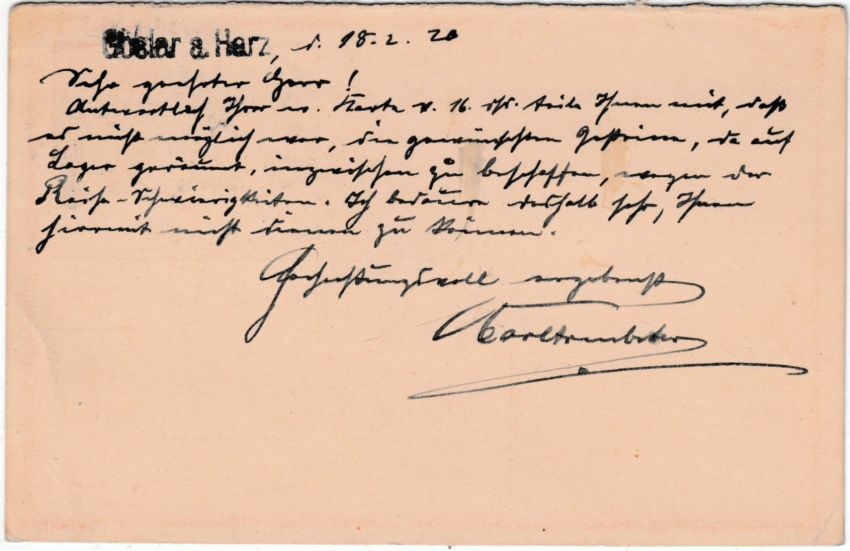 Goslar a. Harz, d. 18.2.20
Sehr geehrter Herr!
Antwortlich Ihrer w. Karte v. 16. ds. teile Ihnen mit, daß
es nicht möglich war, die gewünschten Gesteine, da auf
Lager geräumt, inzwischen zu beschaffen, wegen der
Reise-Schwierigkeiten. Ich bedaure deshalb sehr, Ihnen
hiermit nicht dienen zu können.
Hochachtungsvoll ergebenst